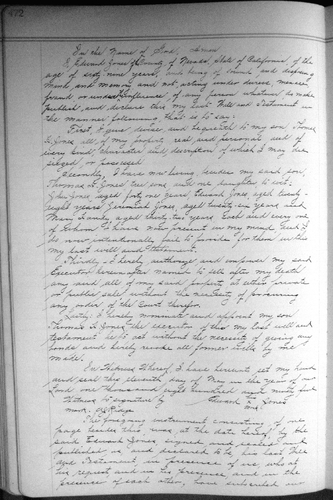 472
In the Name of God, Amen
I, Edward Jones of County of Nevada, State of California, of the
age of sixty nine years, and being of sound and disposing
mind and memory and not acting under duress, menace,
fraud or undue influence of any person whatever do make
publish and declare this my last Will and Testament in
the manner following that is to say:
First, I give devise and bequeath to my son, Thomas
D. Jones all of my property real and personal and of
every kind, character and description of which I may be
seized or possessed
Secondly, I have now living, besides my said son,
Thomas D. Jones two sons and one daughter to wit:
John Jones aged forty one years, Edward Jones aged twenty
eight years Jeremiah Jones, aged twenty six years and
Mary aged thirty two years Each and every one
of whom I have now present in my mind and I
do now intentionally omit to provide for them in this
my last will and
Thirdly, I hereby authorize and empower my said
Executor hereinafter named to sell after my death
any and all of my said property at either private
or public sale without the necessity of procuring
any order of the Court therefor
Lastly: I hereby nominate and appoint my son
Thomas D. Jones the executor of this my last will and
testament he to act without the necessity of giving any
bonds and hereby revoke all former wills by me
made.
In Witness Whereof, I have hereunto set my hand
and seal this eleventh day of May in the year of our
Lord one thousand eight hundred and
Witness to signature by Edward Jones
mark.
The foregoing instrument consisting of one
page besides this was at the date hereof by the
said Edward Jones signed and sealed and
published as and declared to be his last Will
and Testament in presence of us who at
his request and in his presence and in the
presence of each other, have subscribed our